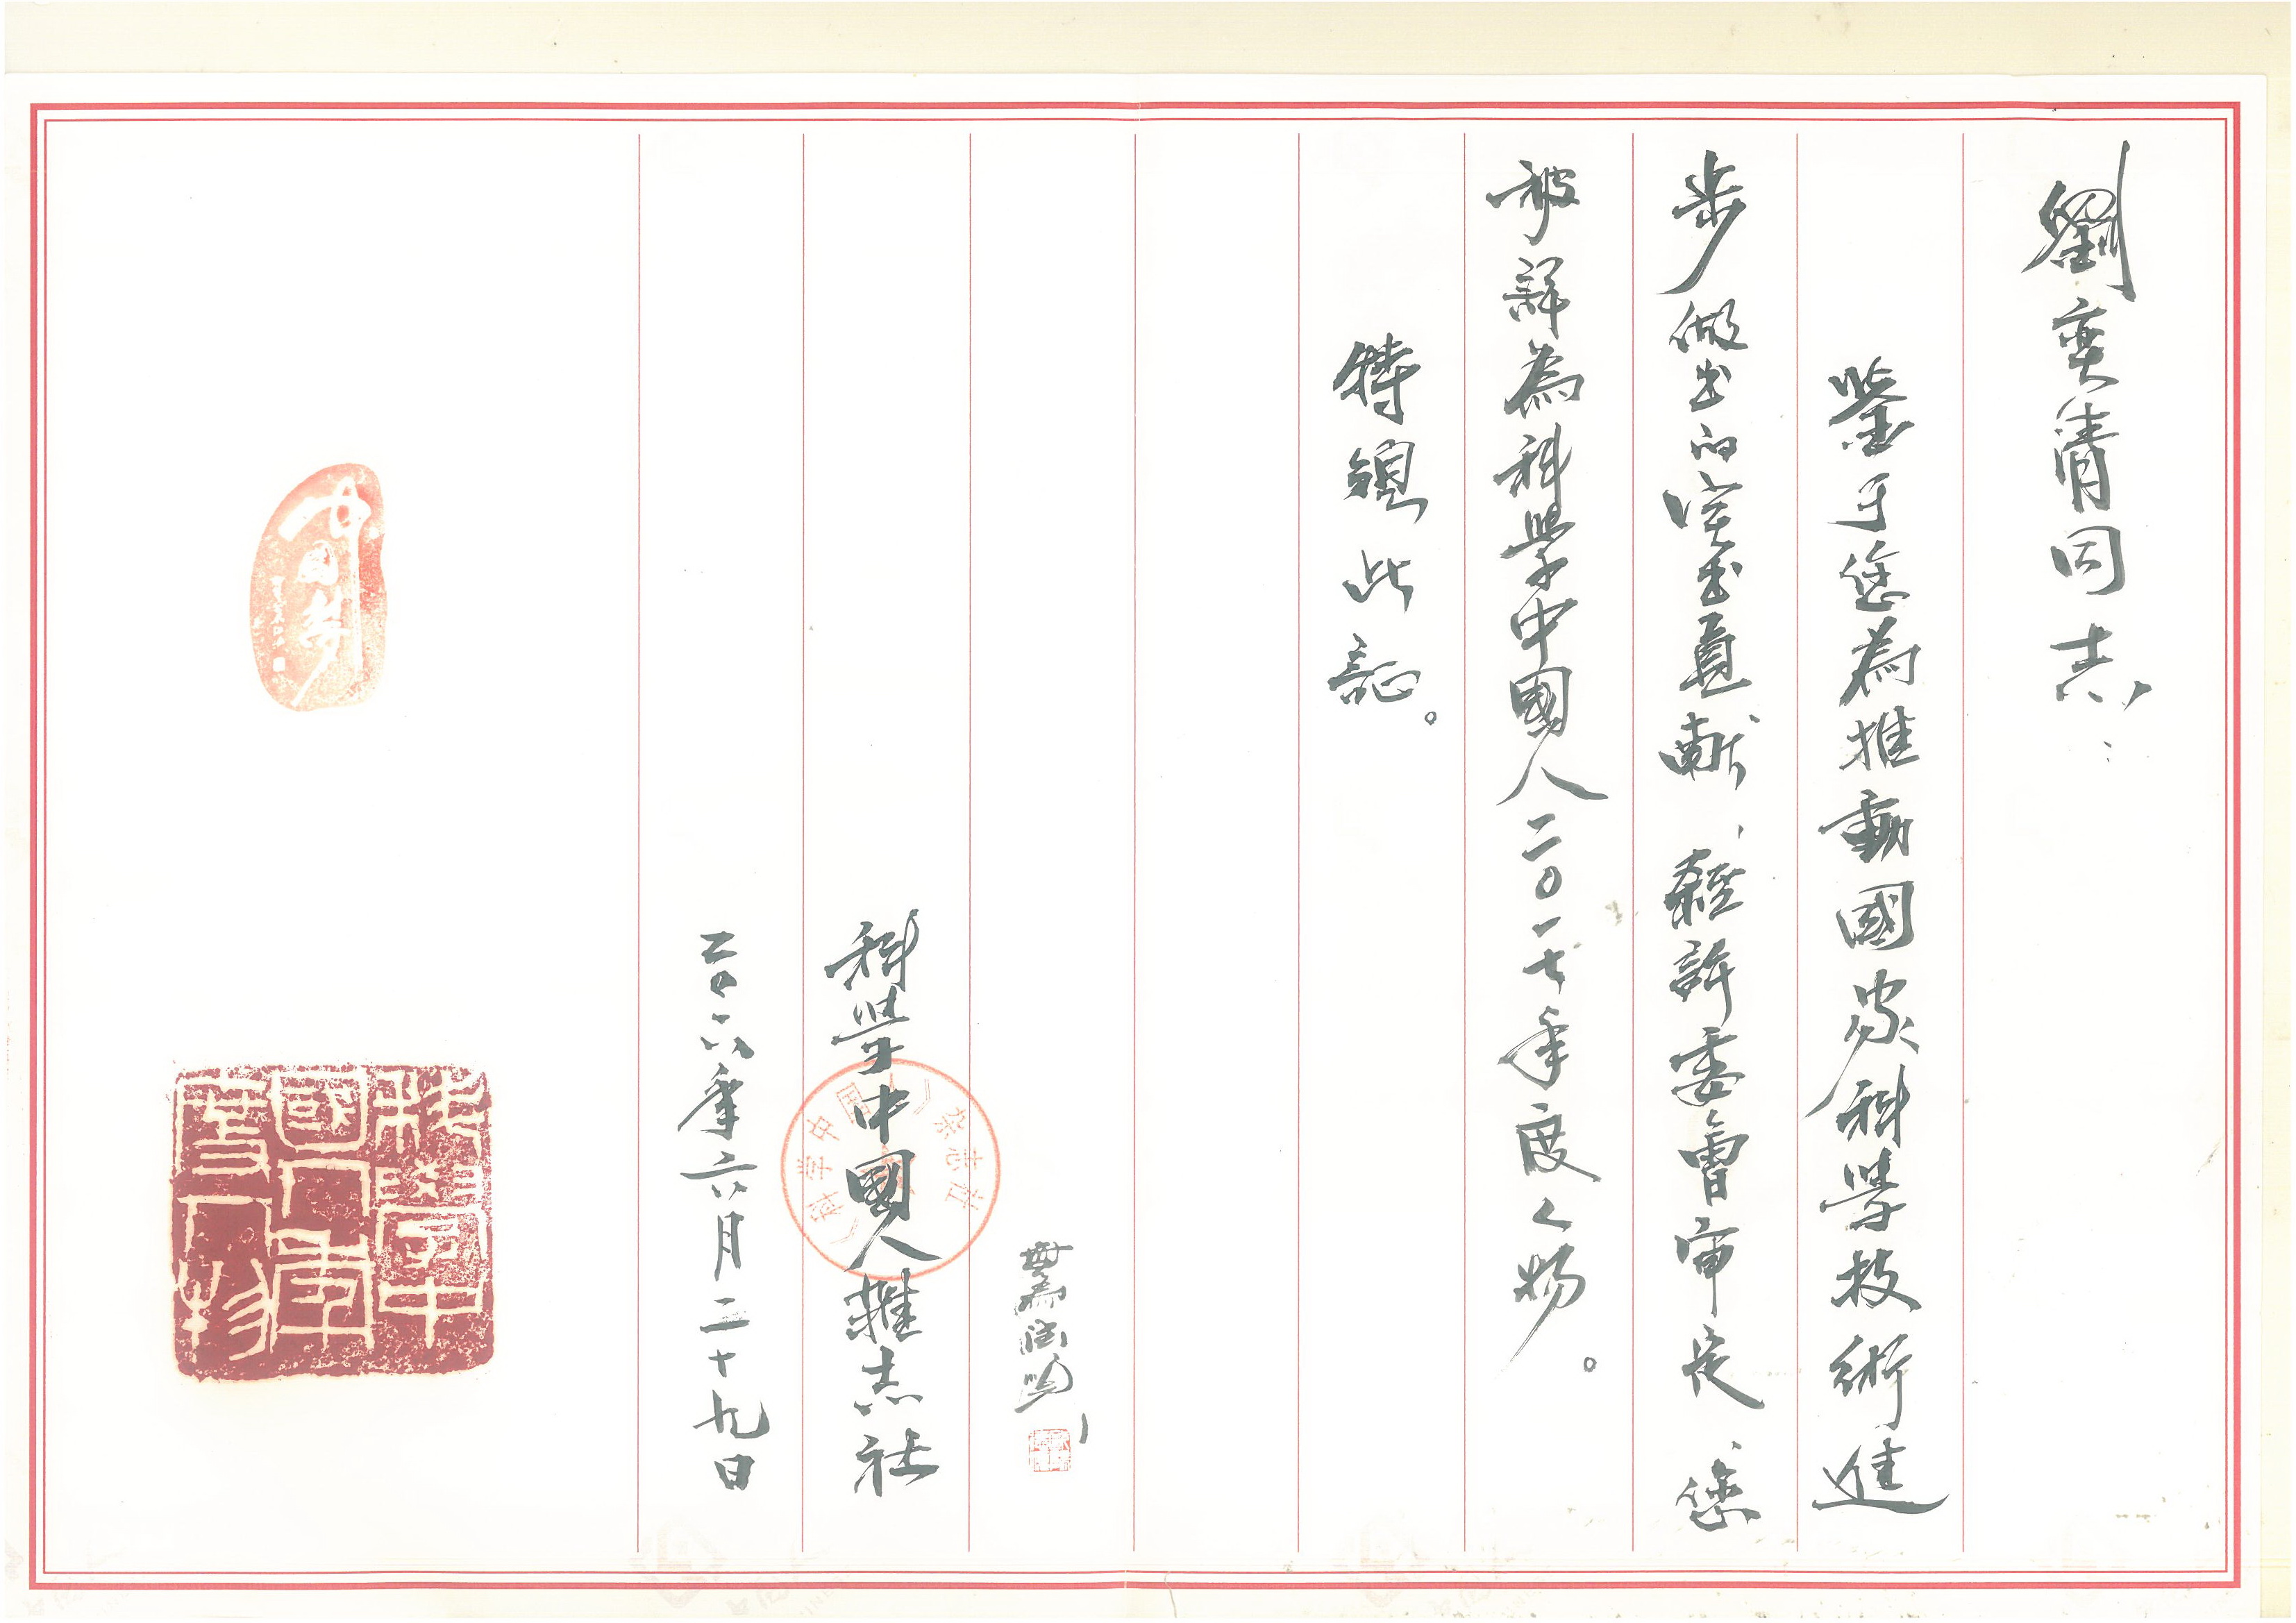 劉奕清同志：
鑒于您為推動國家科學技術進
步做出的突出貢獻，經評委會審定，您
被評為科學中國人二〇一七年度人物。
特頒此証。
科學中國人雜志社
二〇一八年六月二十九日
中国梦
《科学中国人》杂志社
科學中
國人年
度人物